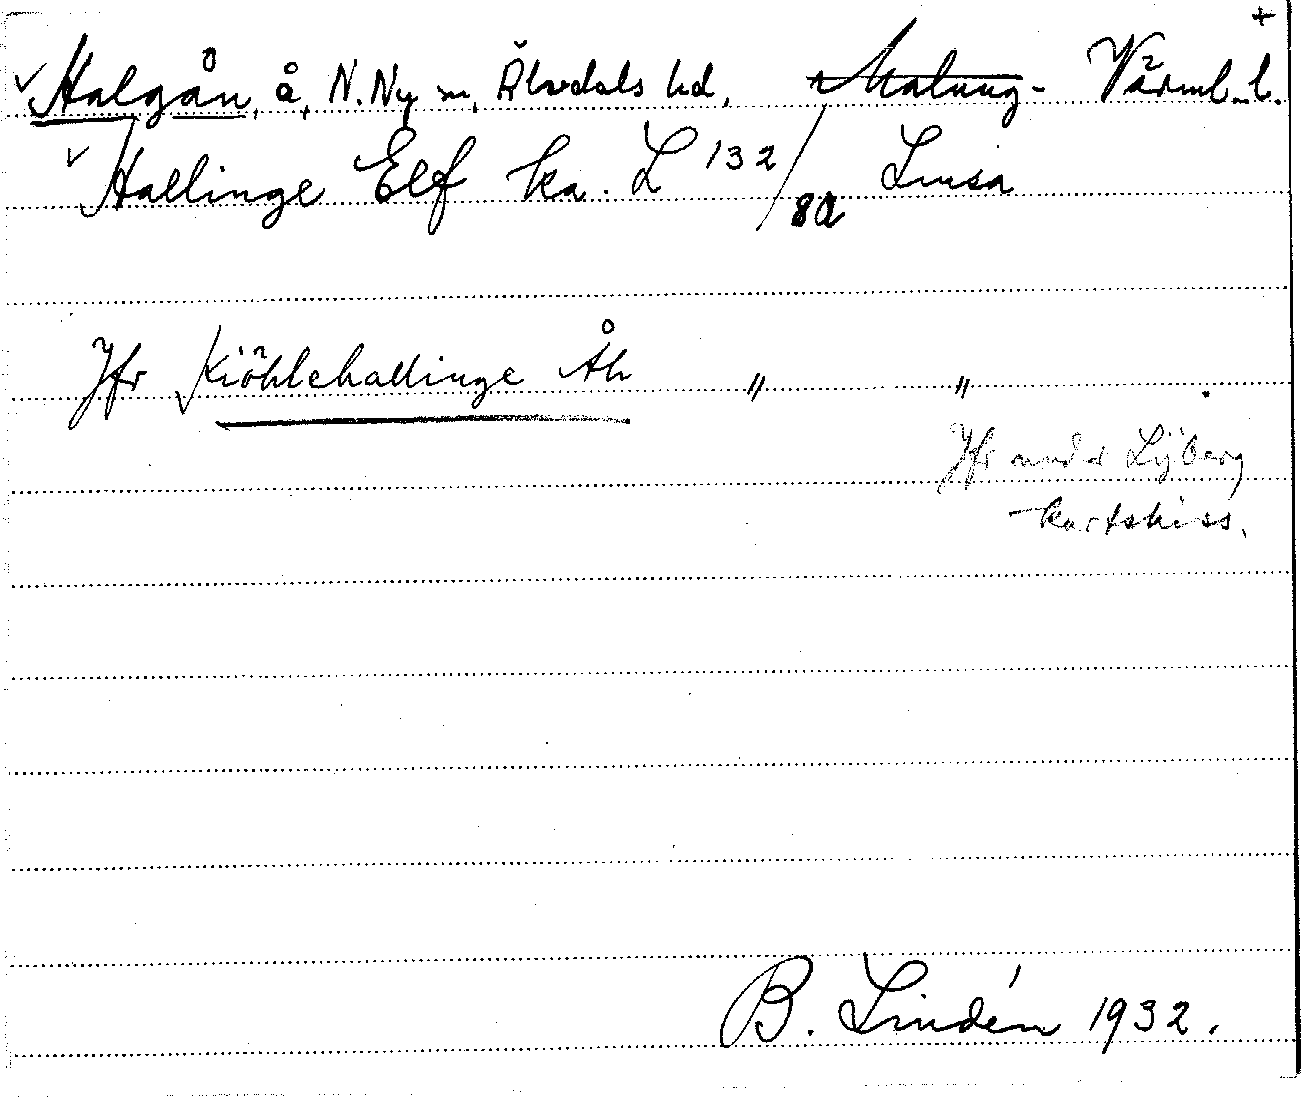 +
√ Halgån, å, N. Ny sn, Älvdals hd, Malung - Värml. l.
√ Hallinge Elf ka. L 132/8a Limsa
Jfr Kiöhlehallinge Åh " "
Jfr under Lÿberg
kartskiss.
B. Lindén 1932.